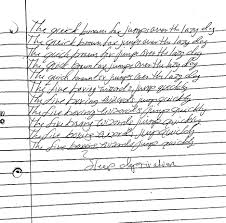 The quick brown fox jumps over the lazy dog
The quick brown fox jumps over the lazy dog
The quick brown fox jumps over the lazy dog
The quick brown fox jumps over the lazy dog
The quick brown fox jumps over the lazy dog
The five boxing wizards jump quickly
The five boxing wizards jump quickly
The five boxing wizards jump quickly
The five boxing wizards jump quickly
The five boxing wizards jump quickly
Sleep deprivation